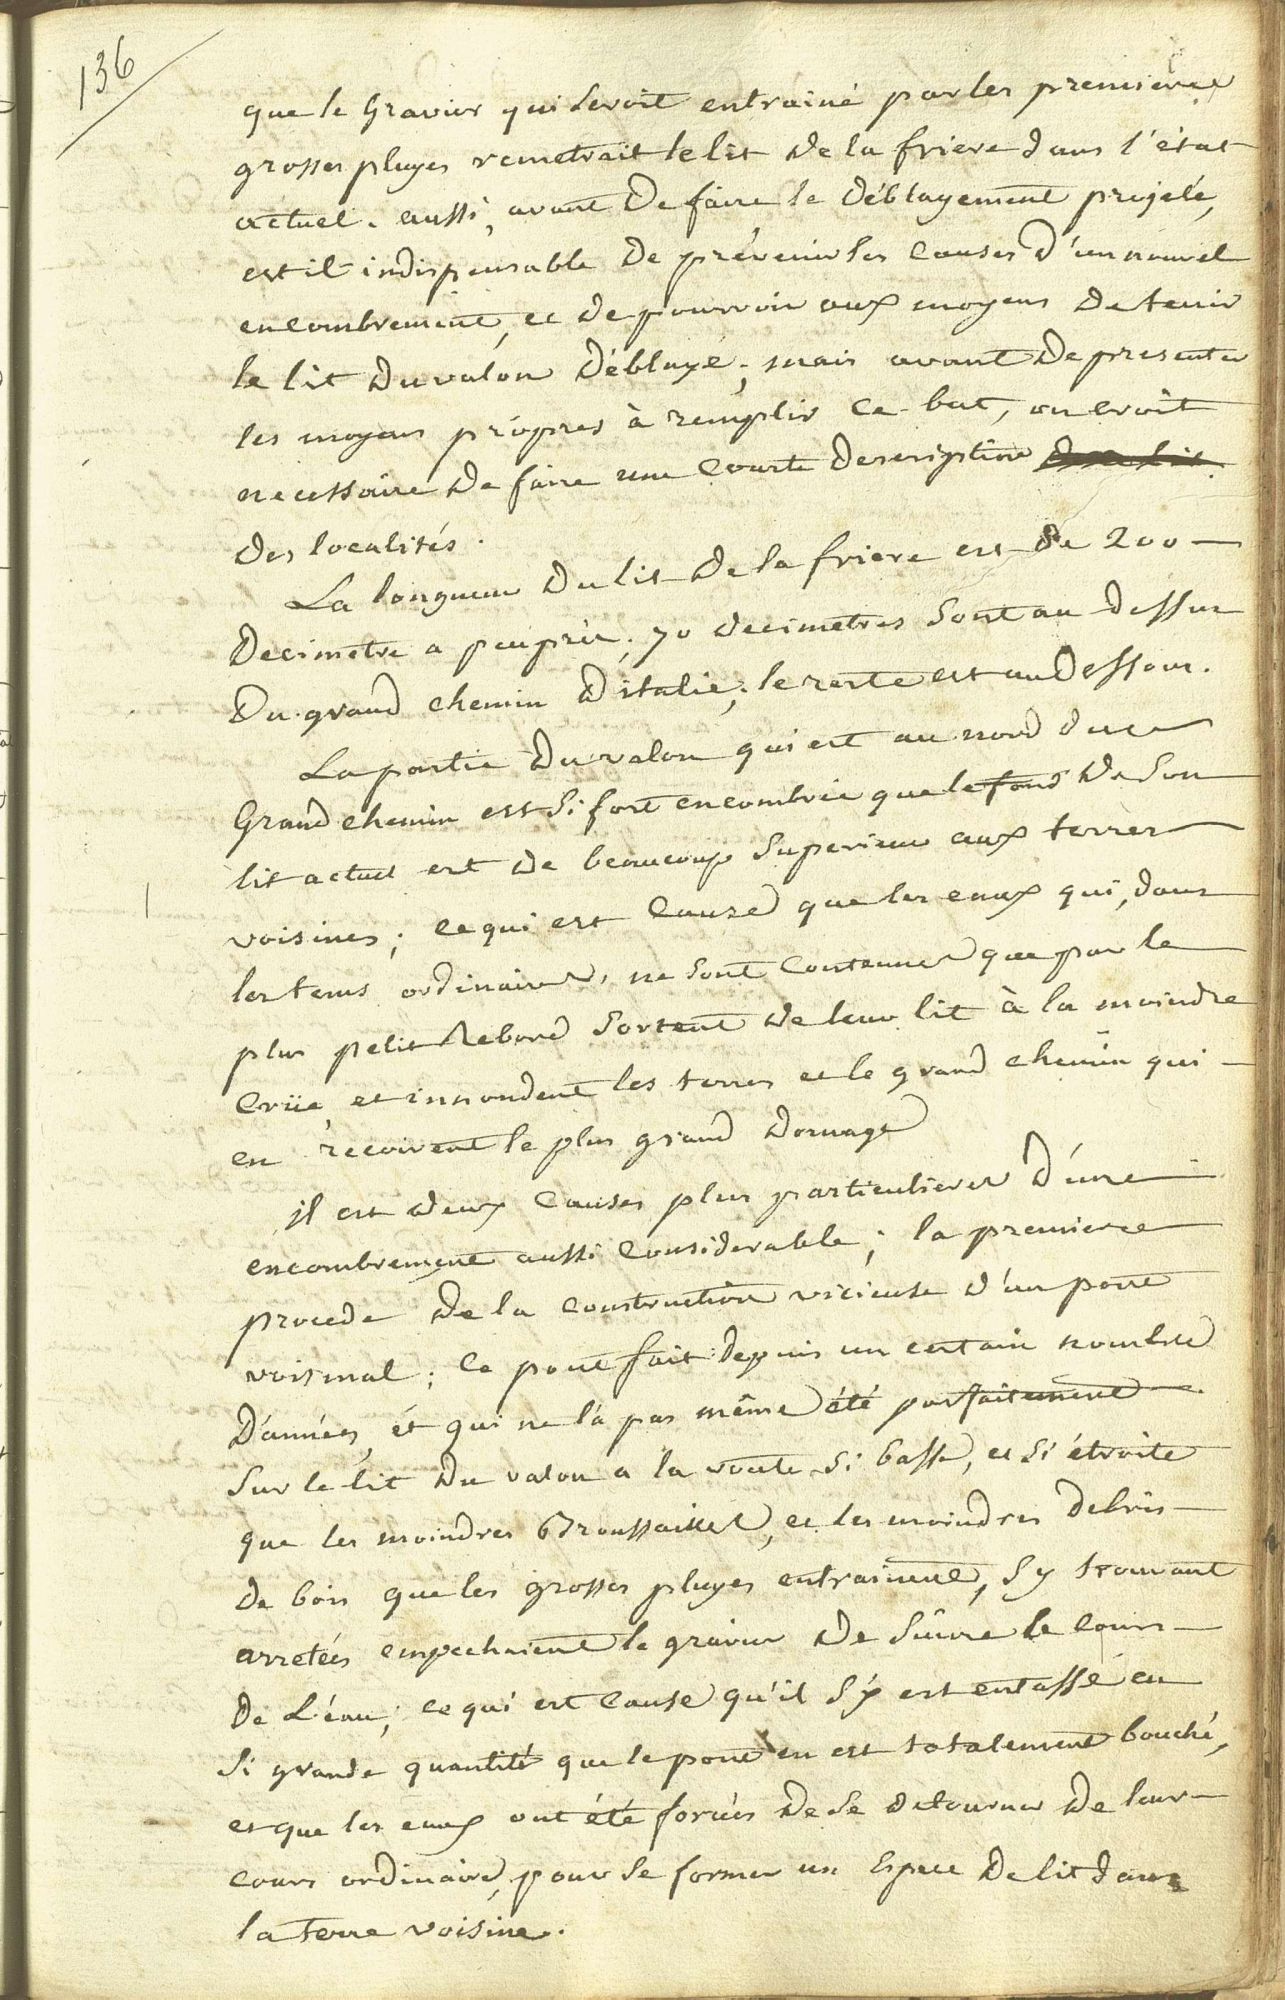 136
que le Gravier qui seroit entrainé par les premieres
grosses pluyes remetrait le lit de la friere dans l'état
actuel. aussi, avant de faire le déblayement projeté,
est il indispensable de prévenir les causes d'un nouvel
encombrement, et de pourvoir aux moyens de tenir
le lit du valon déblayé; mais avant de presenter
les moyens própres à remplir ce but, on croit
necessaire de faire une courte description
des localités.
La longueur du lit de la friere est de 200
decimetre a peuprès; 70 decimetres sont au dessus
du grand chemin d'italie; le reste est au dessous.
La partie du valon qui est au nord du
Grand chemin est si fort encombrée que le fond de son
lit actuel est de beaucoup superieur aux terres
voisines; ce qui est cause que les eaux qui, dans
les tems ordinaires, ne sont contenues que par le
plus petit Rebord sortent de leur lit à la moindre
crüe, et innondent les terres et le grand chemin qui
en recoivent le plus grand domage
il est deux causes plus particulieres d'une
encombrement aussi considerable; la premiere
procede de la construction vicieuse d'un pont
voismal; ce pont fait depuis un certain nombre
d'années, et qui ne l'a pas même été parfaitement
sur le lit du valon a la voute si basse, et si étroite
que les moindres Broussailles, et les moindres debris
de bois que les grosses pluyes entrainent, s'y trouvant
arretées empechaient le gravier de suivre le cours
de L'éau; ce qui est cause qu'il s'y est entassé en
si grande quantité que le pont en est totalement bouché,
et que les eaux ont été forcées de se detourner de leur
cours ordinaire, pour se former un espece de lit dans
la terre voisine.